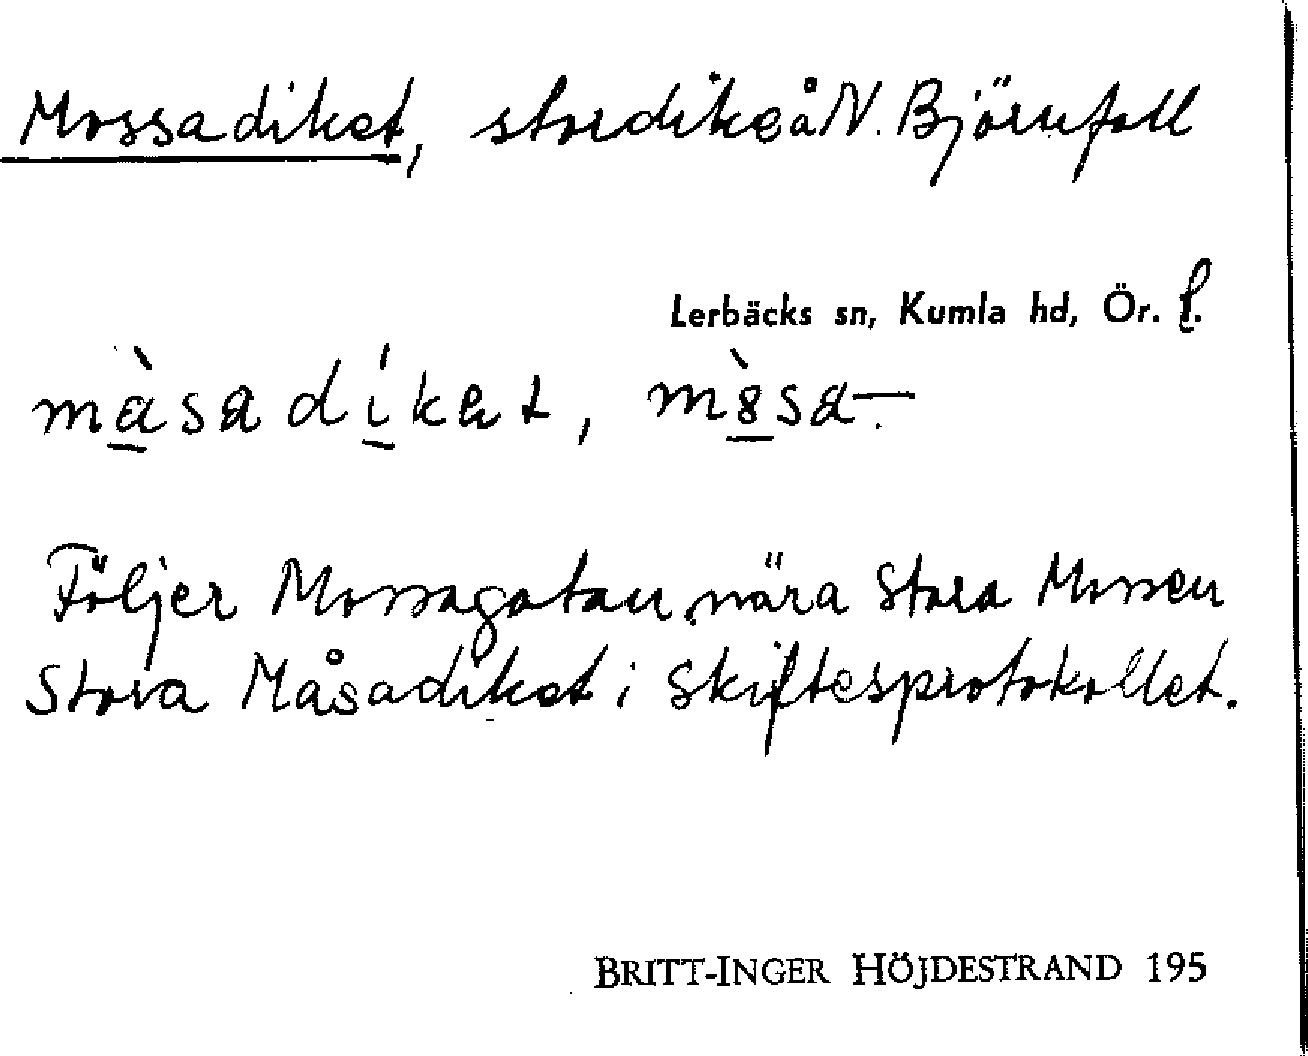 Mossadiket, stordike å N. Björnfall
Lerbäcks sn, Kumla hd, Ör. l.
Följer Mossagatan, nära Stora Mossen
Stora Måsadiket i Skiftesprotokollet.
BRITT-INGER HÖJDESTRAND 195